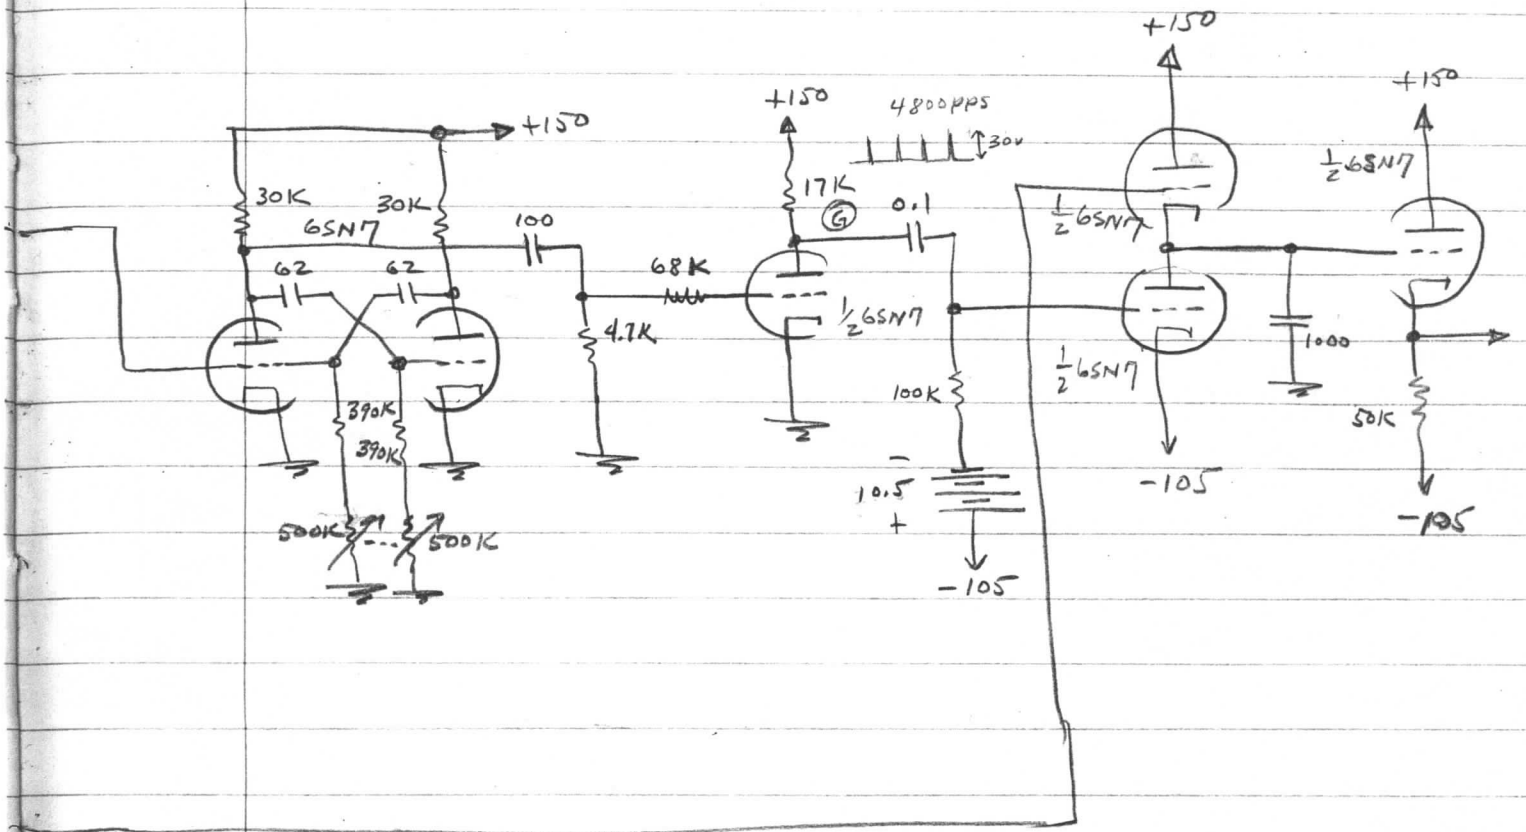 +150
+150
+150
4800pps
30v
+150
30K
30K
6SN7
100
17K
G
0.1
1/2 6SN7
1/2 6SN7
62
62
68K
4.7K
1/2 6SN7
1/2 6SN7
1000
390K
390K
100K
50K
-
10.5
+
500K
500K
-105
-105
-105